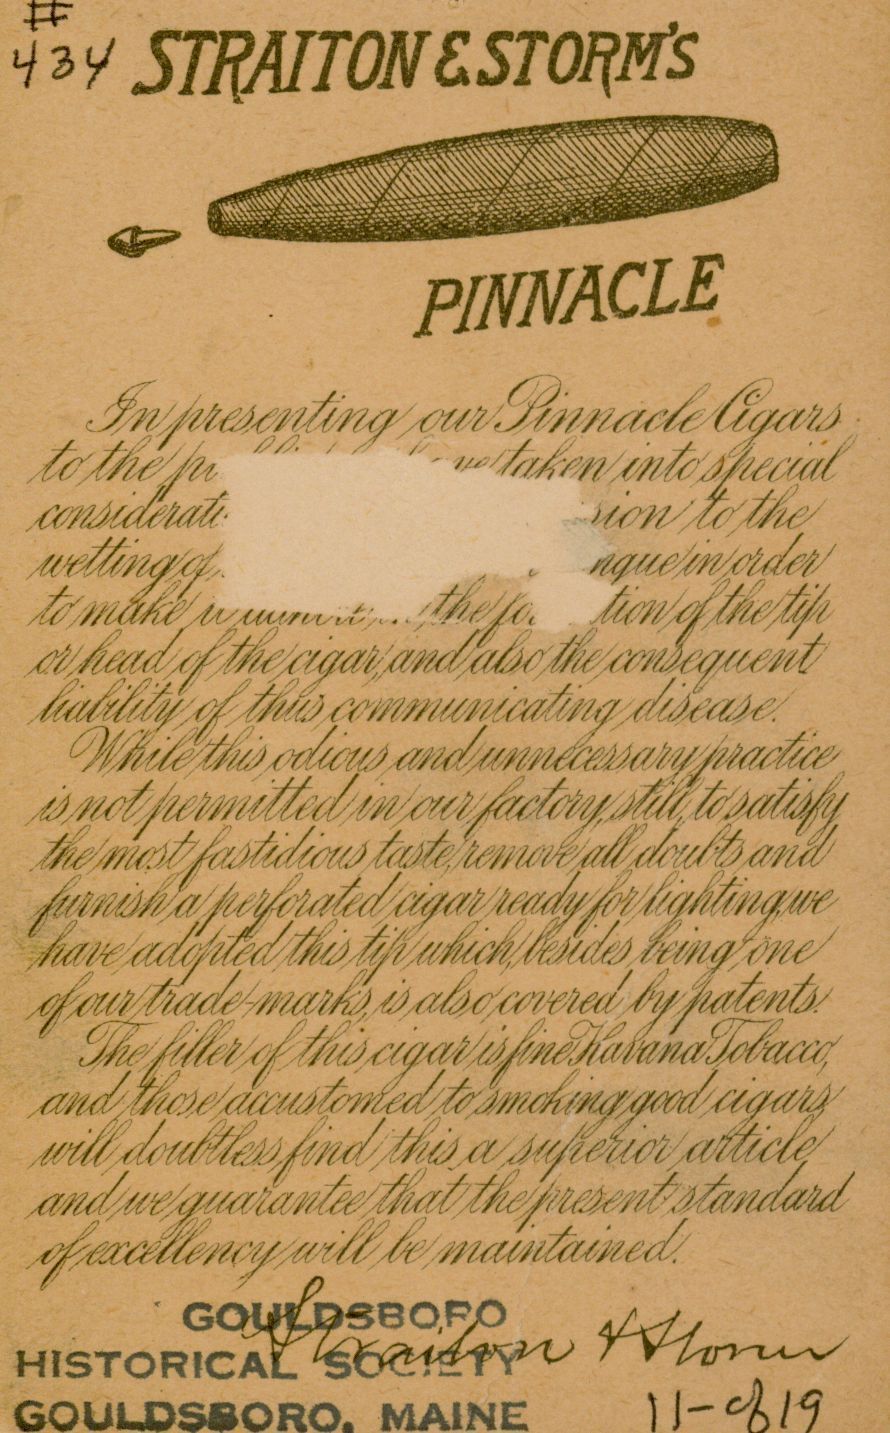 #
434
STRAITON & STORM'S
PINNACLE
In presenting our Pinnacle Cigars
to the taken into special
to the
wetting of in order
to make the of the tip
or head of the cigar, and also the consequent
liability of thus communicating disease.
While this odious and unnecessary practice
is not permitted in our factory, still, to satisfy
the most fastidious taste, remove all doubts and
furnish a perforated cigar ready for lighting, we
have adopted this tip which, besides being one
of our trade-marks, is also covered by patents.
The filler of this cigar is fine Havana Tobacco,
and those accustomed to smoking good cigars
will doubtless find this a superior article
and we guarantee that the present standard
of excellency will be maintained.
Straiton & Storm
GOULDSBORO
HISTORICAL SOCIETY
GOULDSBORO, MAINE
11-of 19